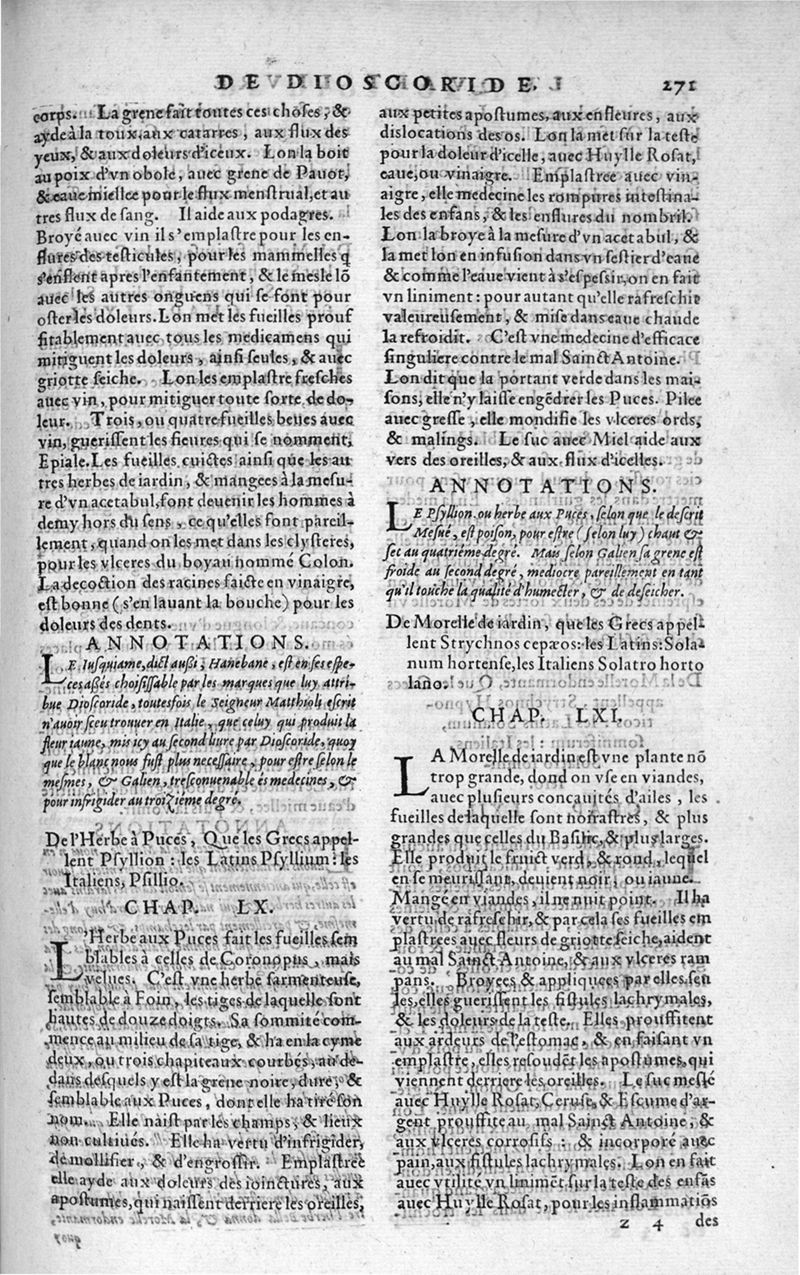 DE DIOSCORIDE. 271
corps. La grene fait toutes ces choses, &
ayde à la toux, aux catarres, aux flux des
yeux, & aux doleurs d'iceux. Lon la boit
au poix d'vn obole, auec grene de Pauot,
& eaue miellee pour le flux menstrual, et au
tres flux de sang. Il aide aux podagres.
Broyé auec vin il s'emplastre pour les en-
flures des testicules, pour les mammelles q
s'enflent apres l'enfantement, & le mesle lō
auec les autres onguens qui se font pour
oster les doleurs. Lon met les fueilles prouf
fitablement auec tous les medicamens qui
mitiguent les doleurs, ainsi seules, & auec
griotte seiche. Lon les emplastre fresches
auec vin, pour mitiguer toute sorte de do-
leur. Trois, ou quatre fueilles beues auec
vin, guerissent les fieures qui se nomment,
Epiale. Les fueilles cuictes ainsi que les au
tres herbes de iardin, & mangees à la mesu-
re d'vn acetabul, font deuenir les hommes à
demy hors du sens, ce qu'elles font pareil-
lement, quand on les met dans les clysteres,
pour les vlceres du boyau nommé Colon.
La decoction des racines faicte en vinaigre,
est bonne (s'en lauant la bouche) pour les
doleurs des dents.
ANNOTATIONS.
LE Iusquiame, dict aussi, Hanebane, est en ses espe-
ces assés choisissable par les marques que luy attri-
bue Dioscoride, toutesfois le Seigneur Matthioli escrit
n'auoir sceu trouuer en Italie, que celuy qui produit la
fleur iaune, mis icy au second liure par Dioscoride, quoy
que le blanc nous fust plus necessaire, pour estre selon le
mesmes, & Galien, tresconuenable és medecines, &
pour infrigider au troizième degré.
De l'Herbe à Puces, Que les Grecs appel-
lent Psyllion: les Latins Psyllium: les
Italiens, Psillio.
CHAP. LX.
L'Herbe aux Puces fait les fueilles sem
blables à celles de Coronopus, mais
velues. C'est vne herbe sarmenteuse,
semblable à Foin, les tiges de laquelle sont
hautes de douze doigts. Sa sommité com-
mence au milieu de sa tige, & ha en la cyme
deux, ou trois chapiteaux courbés, au de-
dans desquels y est la grene noire, dure, &
semblable aux Puces, dont elle ha tiré son
nom. Elle naist par les champs, & lieux
non cultiués. Elle ha vertu d'infrigider,
de mollifier, & d'engrossir. Emplastree
elle ayde aux doleurs des ioinctures, aux
apostumes, qui naissent derriere les oreilles,
aux petites apostumes, aux enfleures, aux
dislocations des os. Lon la met sur la teste
pour la doleur d'icelle, auec Huylle Rosat,
eaue, ou vinaigre. Emplastree auec vin-
aigre, elle medecine les rompures intestina-
les des enfans, & les enflures du nombril.
Lon la broye à la mesure d'vn acetabul, &
la met lon en infusion dans vn sestier d'eaue
& comme l'eaue vient à s'espessir, on en fait
vn liniment: pour autant qu'elle rafreschit
valeureusement, & mise dans eaue chaude
la refroidit. C'est vne medecine d'efficace
singuliere contre le mal Sainct Antoine.
Lon dit que la portant verde dans les mai-
sons, elle n'y laisse engēdrer les Puces. Pilee
auec gresse, elle mondifie les vlceres ords,
& malings. Le suc auec Miel aide aux
vers des oreilles, & aux flux d'icelles.
ANNOTATIONS.
LE Psyllion, ou herbe aux Puces, selon que le descrit
Mesué, est poison, pour estre (selon luy) chaut &
sec au quatriéme degré. Mais selon Galien sa grene est
froide au second degré, mediocre pareillement en tant
qu'il touche la qualité d'humecter, & de deseicher.
De Morelle de iardin, que les Grecs appel-
lent Strychnos cepæos: les Latins: Sola-
num hortense, les Italiens Solatro horto
lano.
CHAP. LXI.
LA Morelle de iardin est vne plante nō
trop grande, dond on vse en viandes,
auec plusieurs concauités d'ailes, les
fueilles de laquelle sont noirastres, & plus
grandes que celles du Basilic, & plus larges.
Elle produit le fruict verd, & rond, lequel
en se meurissant, deuient noir, ou iaune.
Mangé en viandes, il ne nuit point. Il ha
vertu de rafreschir, & par cela ses fueilles em
plastrees auec fleurs de griotte seiche, aident
au mal Sainct Antoine, & aux vlceres ram
pans. Broyees & appliquees par elles seu
les, elles guerissent les fistules lachrymales,
& les doleurs de la teste. Elles prouffitent
aux ardeurs de l'estomac, & en faisant vn
emplastre, elles resoudēt les apostumes, qui
viennent derriere les oreilles. Le suc meslé
auec Huylle Rosat, Ceruse, & Escume d'ar-
gent prouffite au mal Sainct Antoine, &
aux vlceres corrosifs: & incorporé auec
pain, aux fistules lachrymales. Lon en fait
auec vtilité vn linimēt sur la teste des enfās
auec Huylle Rosat, pour les inflammatiōs
z 4 des